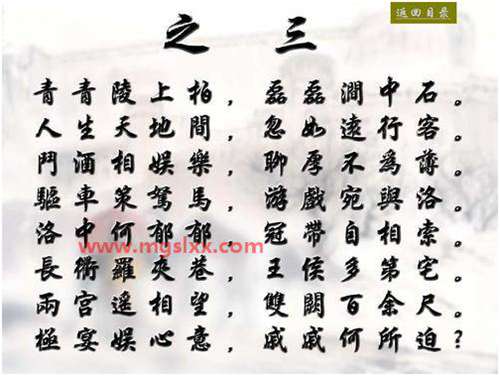 返回目录
之三
青青陵上柏，磊磊澗中石。
人生天地間，忽如遠行客。
鬥酒相娛樂，聊厚不為薄。
驅車策駑馬，游戲宛與洛。
洛中何郁郁，冠帶自相索。
www.mgslxx.com
長衢羅夾巷，王侯多第宅。
兩宮遥相望，雙闕百余尺。
極宴娱心意，戚戚何所迫？